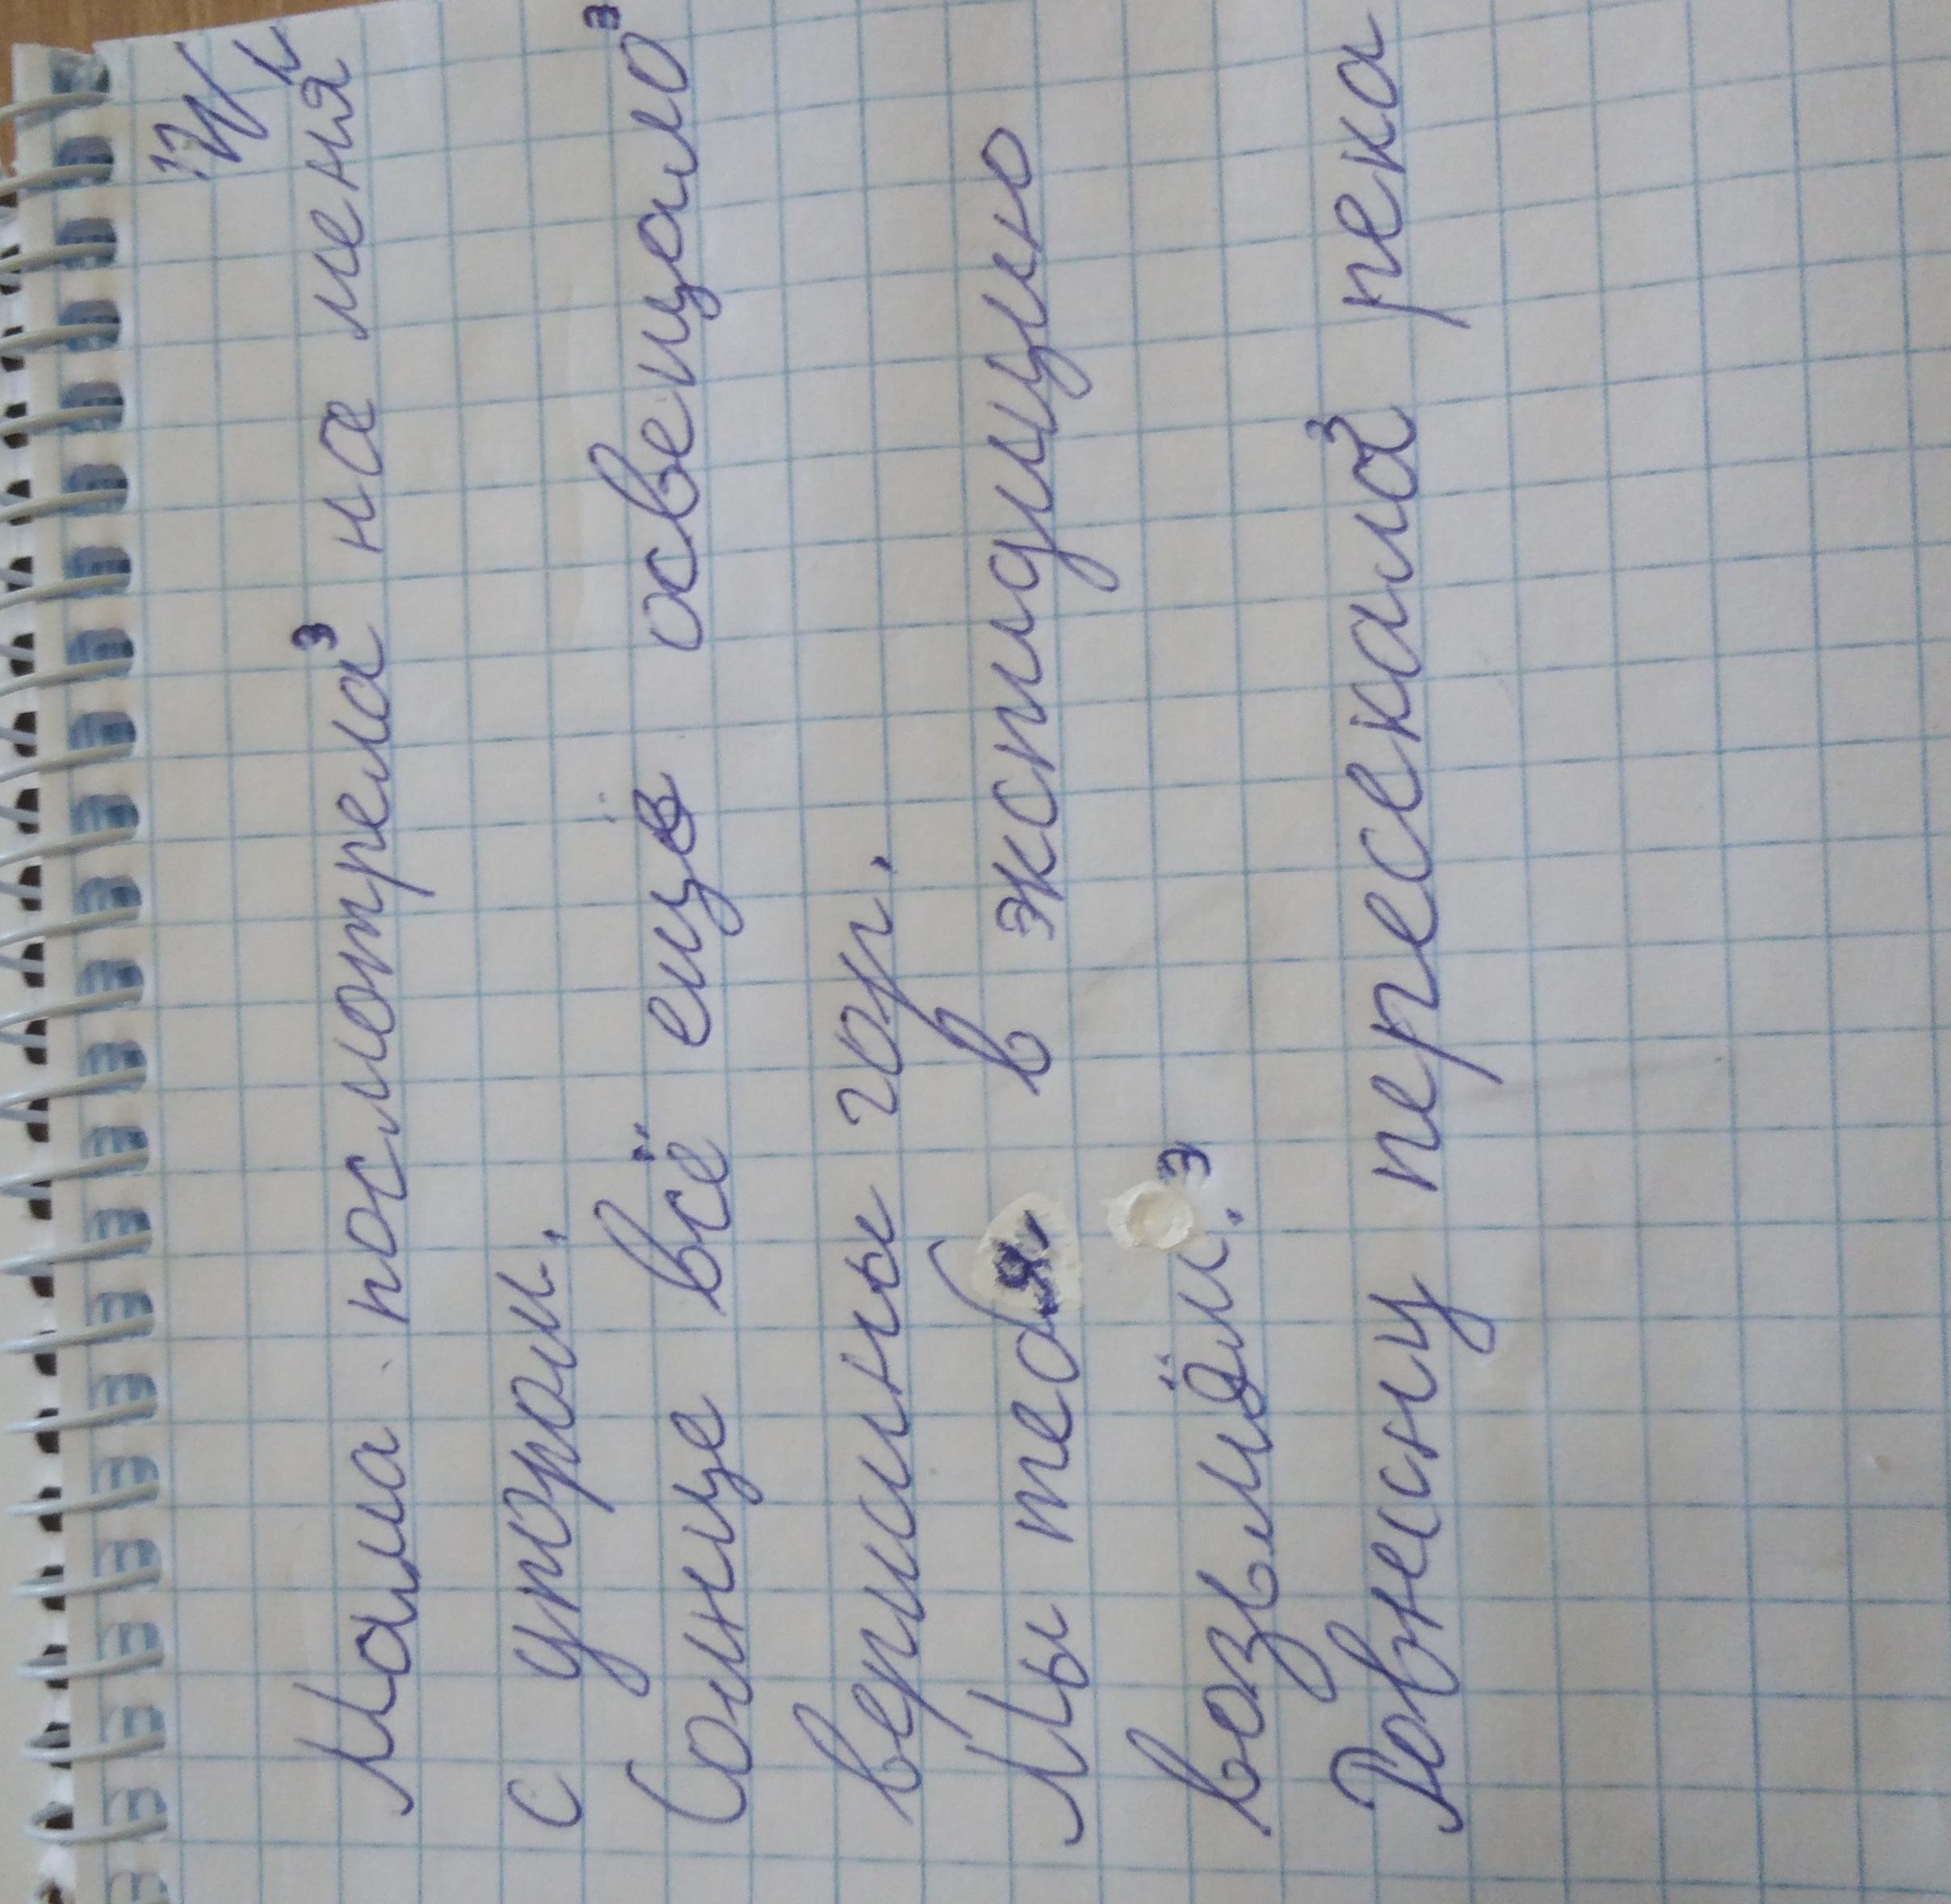 Мама посмотрела³ на меня
с утром.
Сонце всё ещё освещало³
вершины гор.
Мы тебя в экспидицию
возьмём.³
Ровнесну пересекала³ река